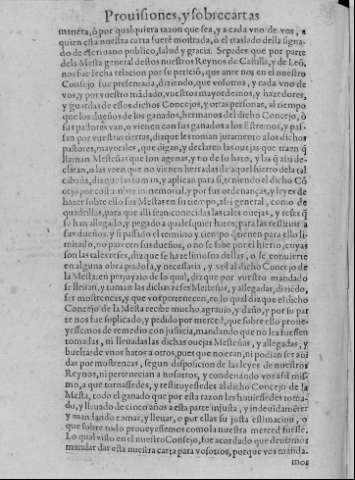 Prouisiones, y sobrecartas
manera, ò por qualquiera razon que sea, y a cada vno de vos, a
quien esta nuestra carta fuere mostrada, ò el traslado della signa-
do de escriuano publico, salud y gracia. Sepades que por parte
de la Mesta general destos nuestros Reynos de Castilla, y de Leõ,
nos fue fecha relacion por su peticiõ, que ante nos en el nuestro
Consejo fue presentada, diziendo, que vosotros, y cada vno de
vos, y por vuestro mãdado, vuestros mayordomos, y hazedores,
y guardas de essos dichos Concejos, y otras personas, al tiempo
que los dueños de los ganados, hermanos del dicho Concejo, ò
sus pastores van, o vienen con sus ganados a los Estremos, y pas-
san por vuestras tierras, diz que les toman juramento a los dichos
pastores, mayorales, que digan, y declaren las ouejas que traen q̃
llaman Mesteñas que son agenas, y no de su hato, y las q̃ assi de-
claran, o las veen que no vienen herradas de aquel hierro de la tal
cabaña, diz que las toman, y aplican para si, teniendo el dicho Cõ
cejo por costumbre immemorial, y por sus ordenanças, y leyes de
hazer sobre ello sus Mestas en su tiempo, assi general, como de
quadrillas, para que alli sean conocidas las tales ouejas, y reses q̃
se han allegado, y pegado a qualesquier hatos, para las restituir a
sus dueños, y si passado el termino y tiempo que tienen para ello li-
mitado, no parecen sus dueños, o no se sabe por el hierro, cuyas
son las tales reses, diz que se haze limosna dellas, o se conuierte
en alguna obra pia de la, y necessaria, y vtil al dicho Concejo de la
Mesta: en perjuyzio de lo qual, diz que por vuestro mandado
se lleuan, y toman las dichas reses Mesteñas, y allegadas, diziẽdo,
ser mostrencas, y que vos pertenecen, en lo qual diz que el dicho
Concejo de la Mesta recibe mucho agrauio, y daño, y por su par
te nos fue suplicado, y pedido por merced, que sobre ello proue-
yessemos de remedio con justicia, mandando que no les fuessen
tomadas, ni lleuadas las dichas ouejas Mesteñas, y allegadas, y
bueltas de vnos hatos a otros, pues que no eran, ni podian ser auidas
por mostrencas, segun disposicion de las leyes de nuestros
Reynos, ni pertenecian a nosotros, y condenando vos assi mis-
mo, a que tornassedes, y restituyessedes al dicho Concejo de la
Mesta, todo el ganado que por esta razon les huuiessedes toma-
do, y lleuado de cinco años a esta parte injusta, y indeuidamẽte
y mandando tomar, y lleuar, o por ellas su justa estimacion, o
que sobre todo proueyessemos como la nuestra merced fuesse.
Lo qual visto en el nuestro Consejo, fue acordado que deuiamos
mandar dar esta nuestra carta para vosotros, porque vos manda-
mos